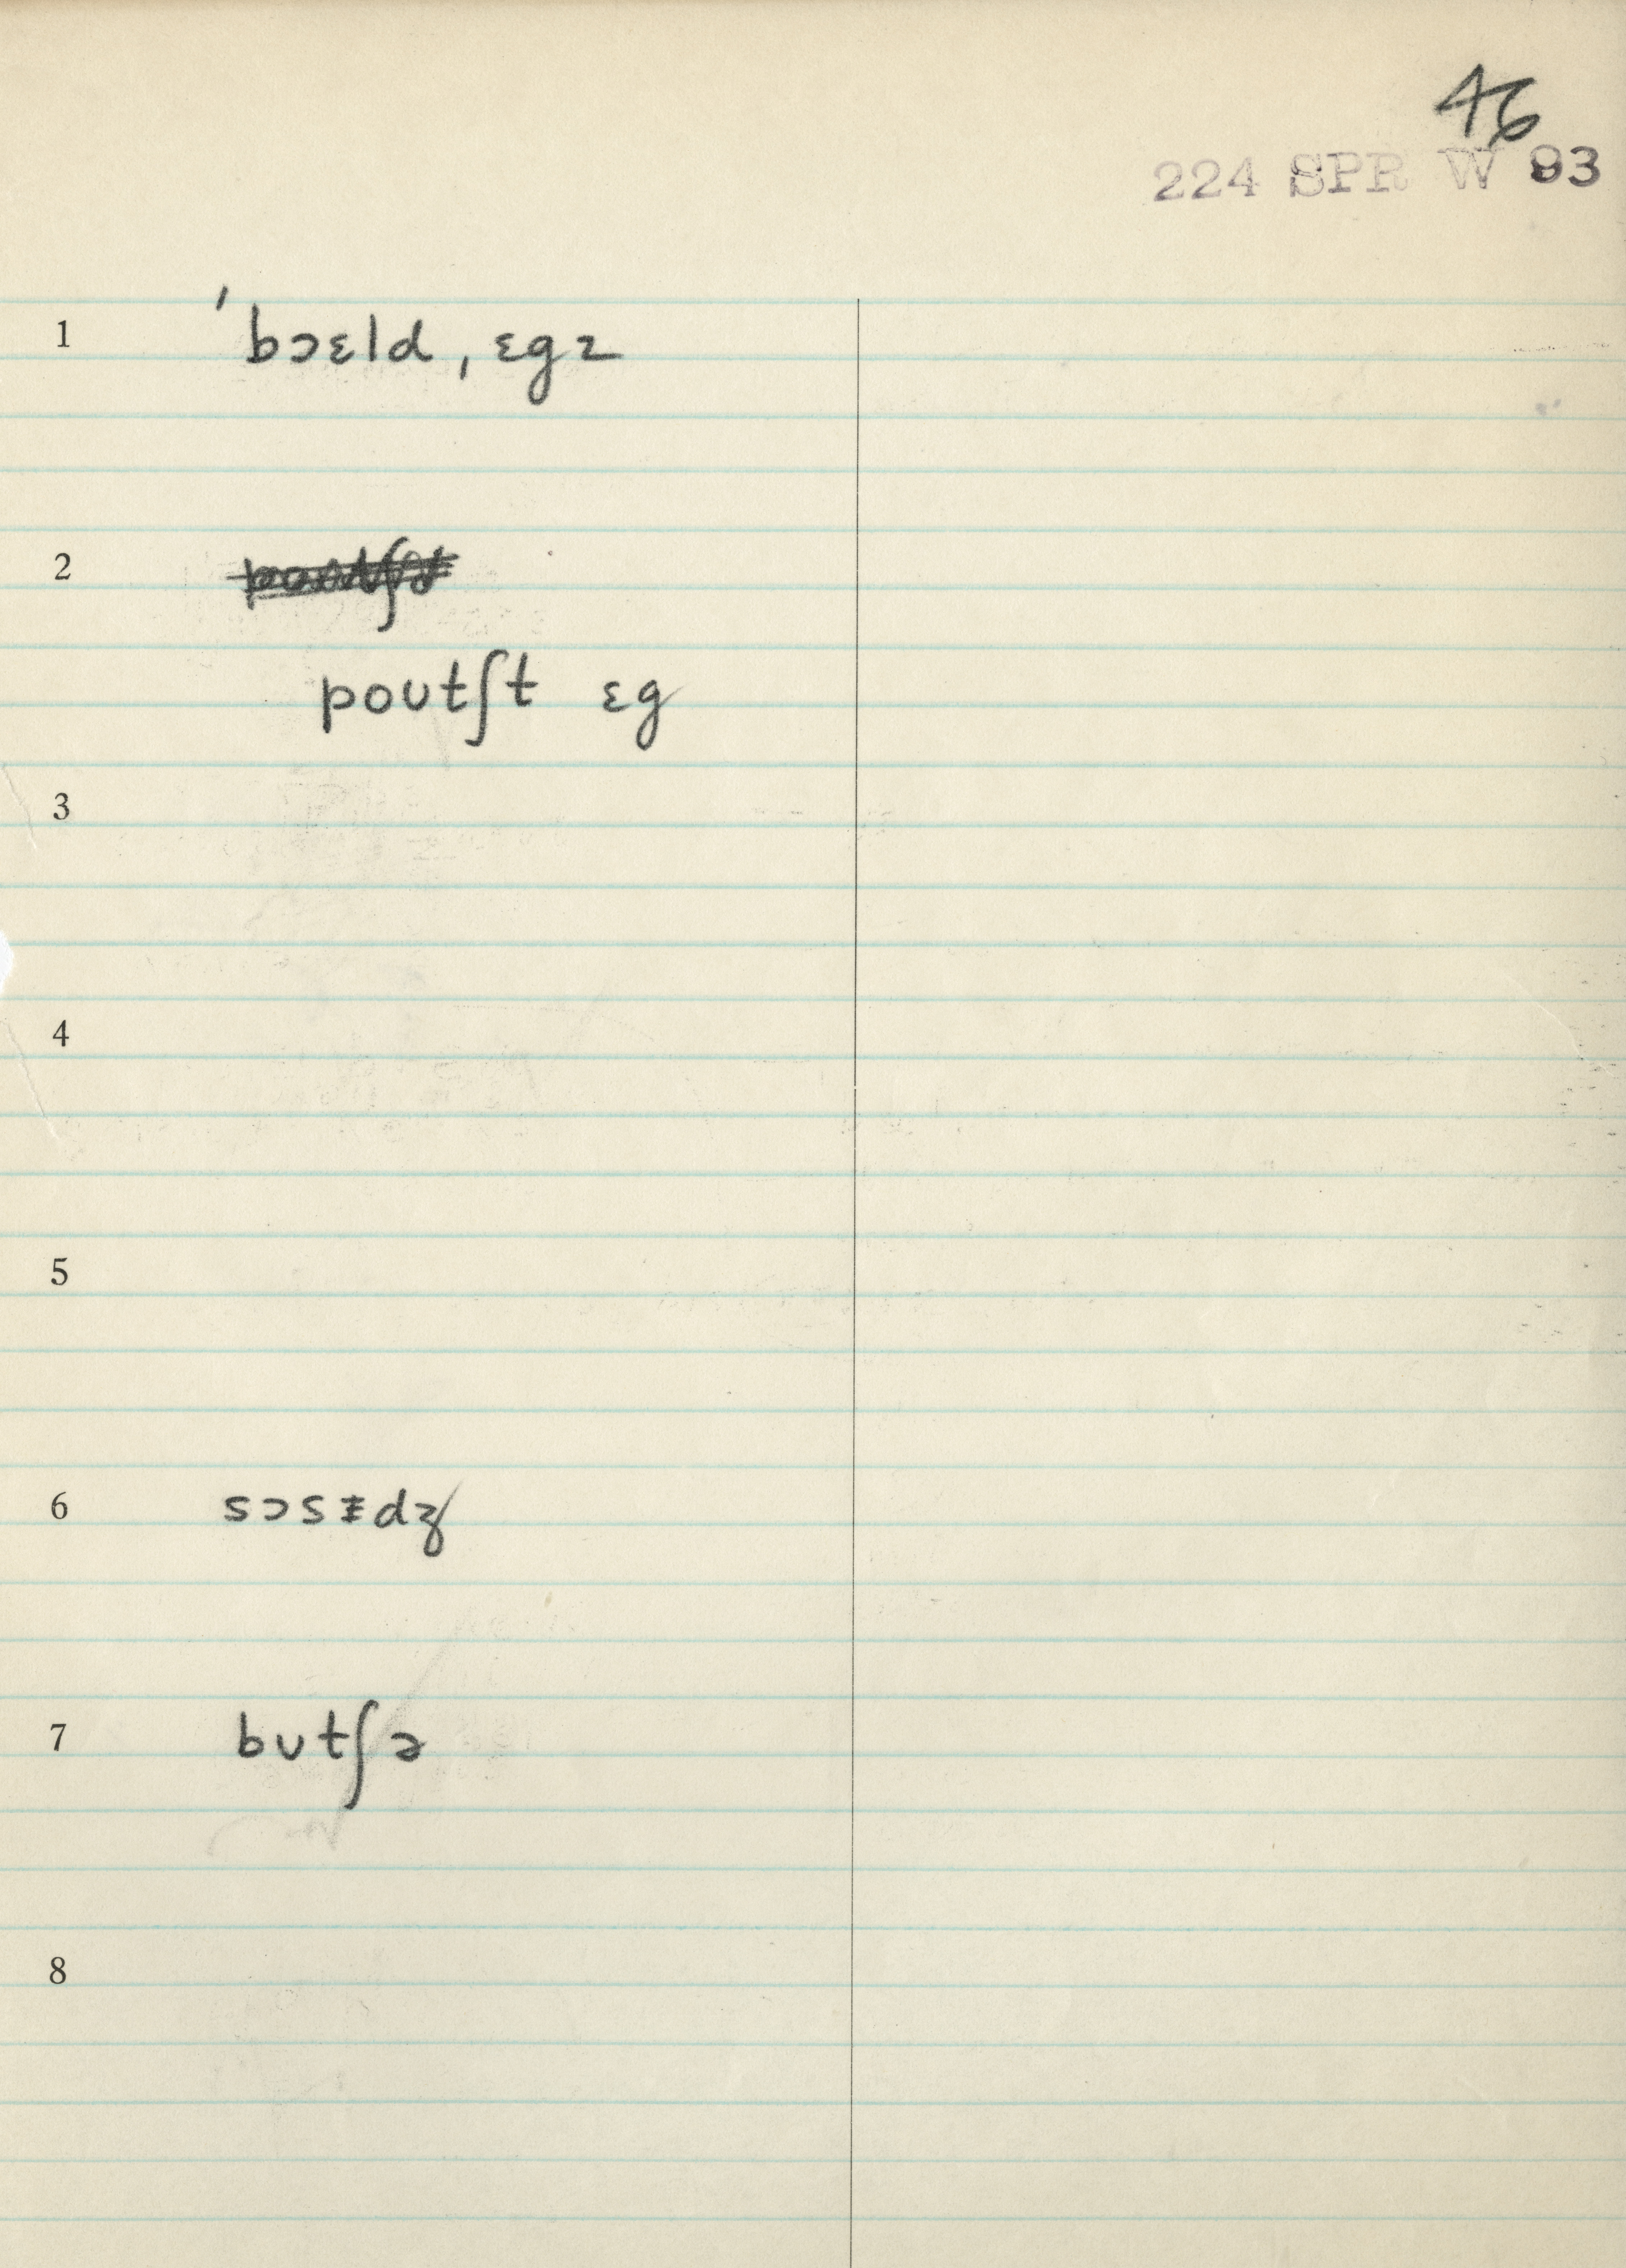 46
224 SPR W 93
1 ˈbɔɛld ˌɛgz
2
poʊtʃt ɛg
3
4
5
6 sɔsɪ̵dʒ
7 bʊtʃə
8